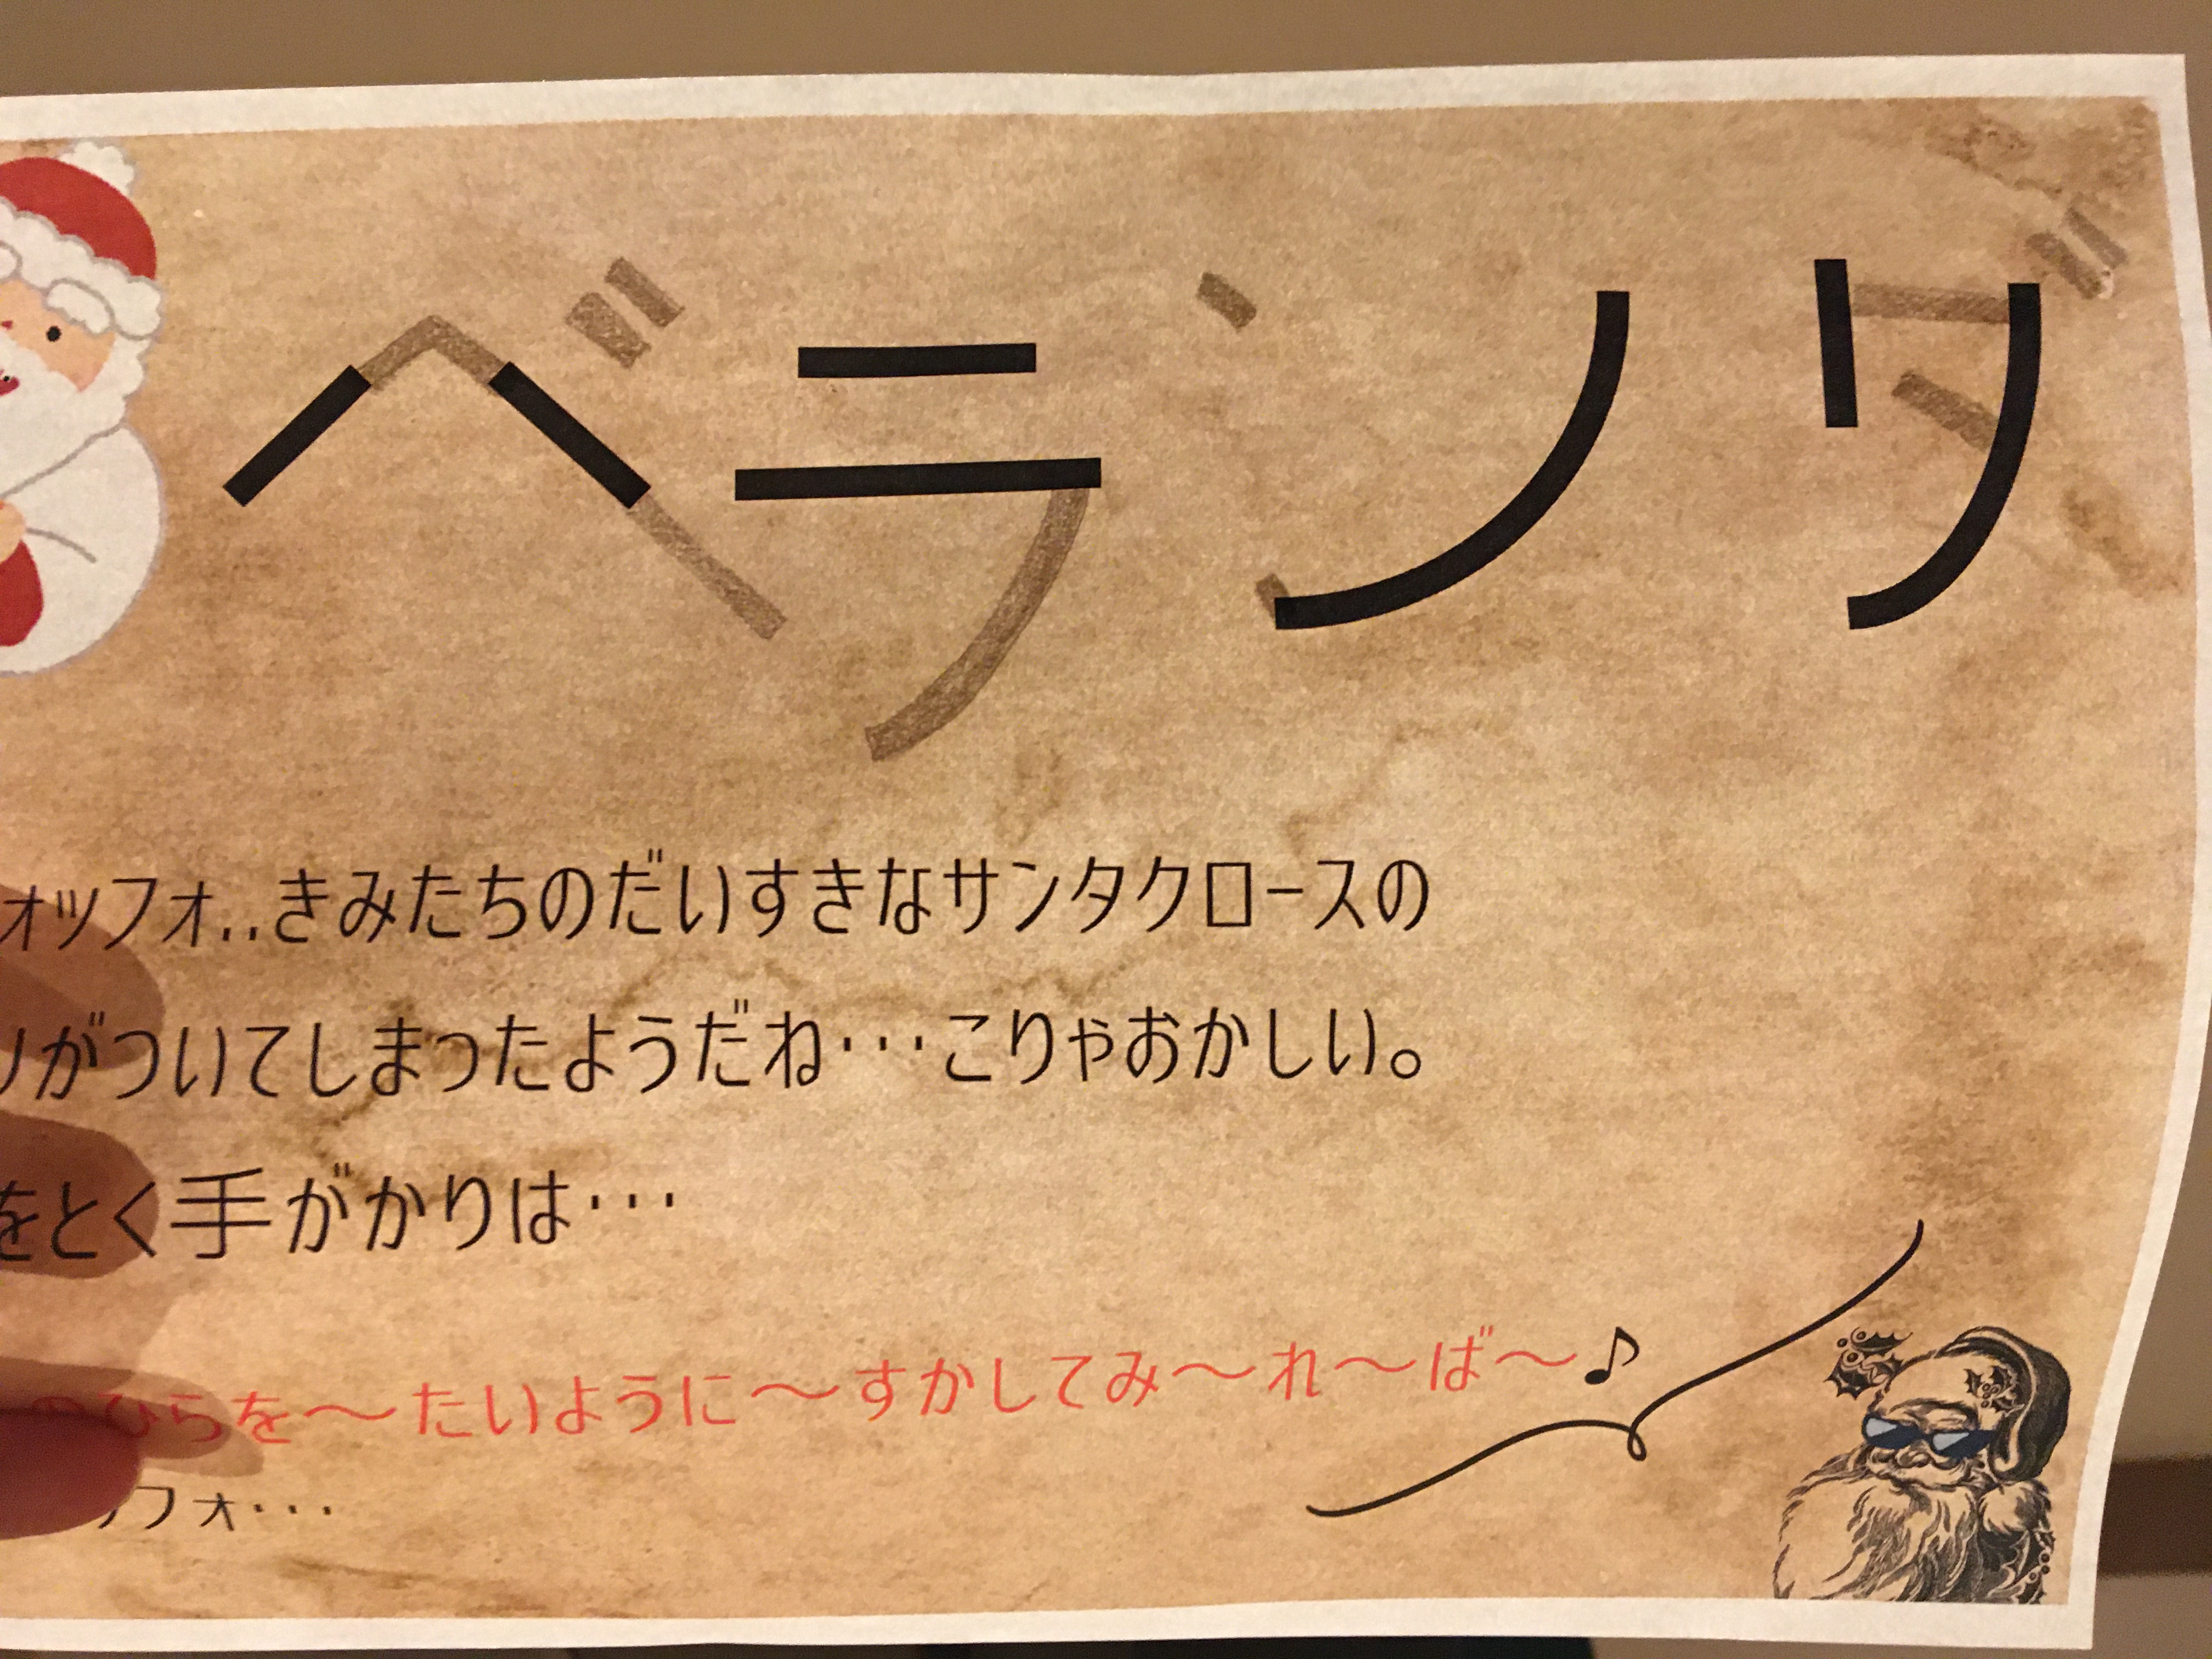 ベランダ
オッフォ..きみたちのだいすきなサンタクロースの
がついてしまったようだね・・・こりゃおかしい。
をとく手がかりは・・・
のひらを～たいように～すかしてみ～れ～ば～♪
フォ・・・